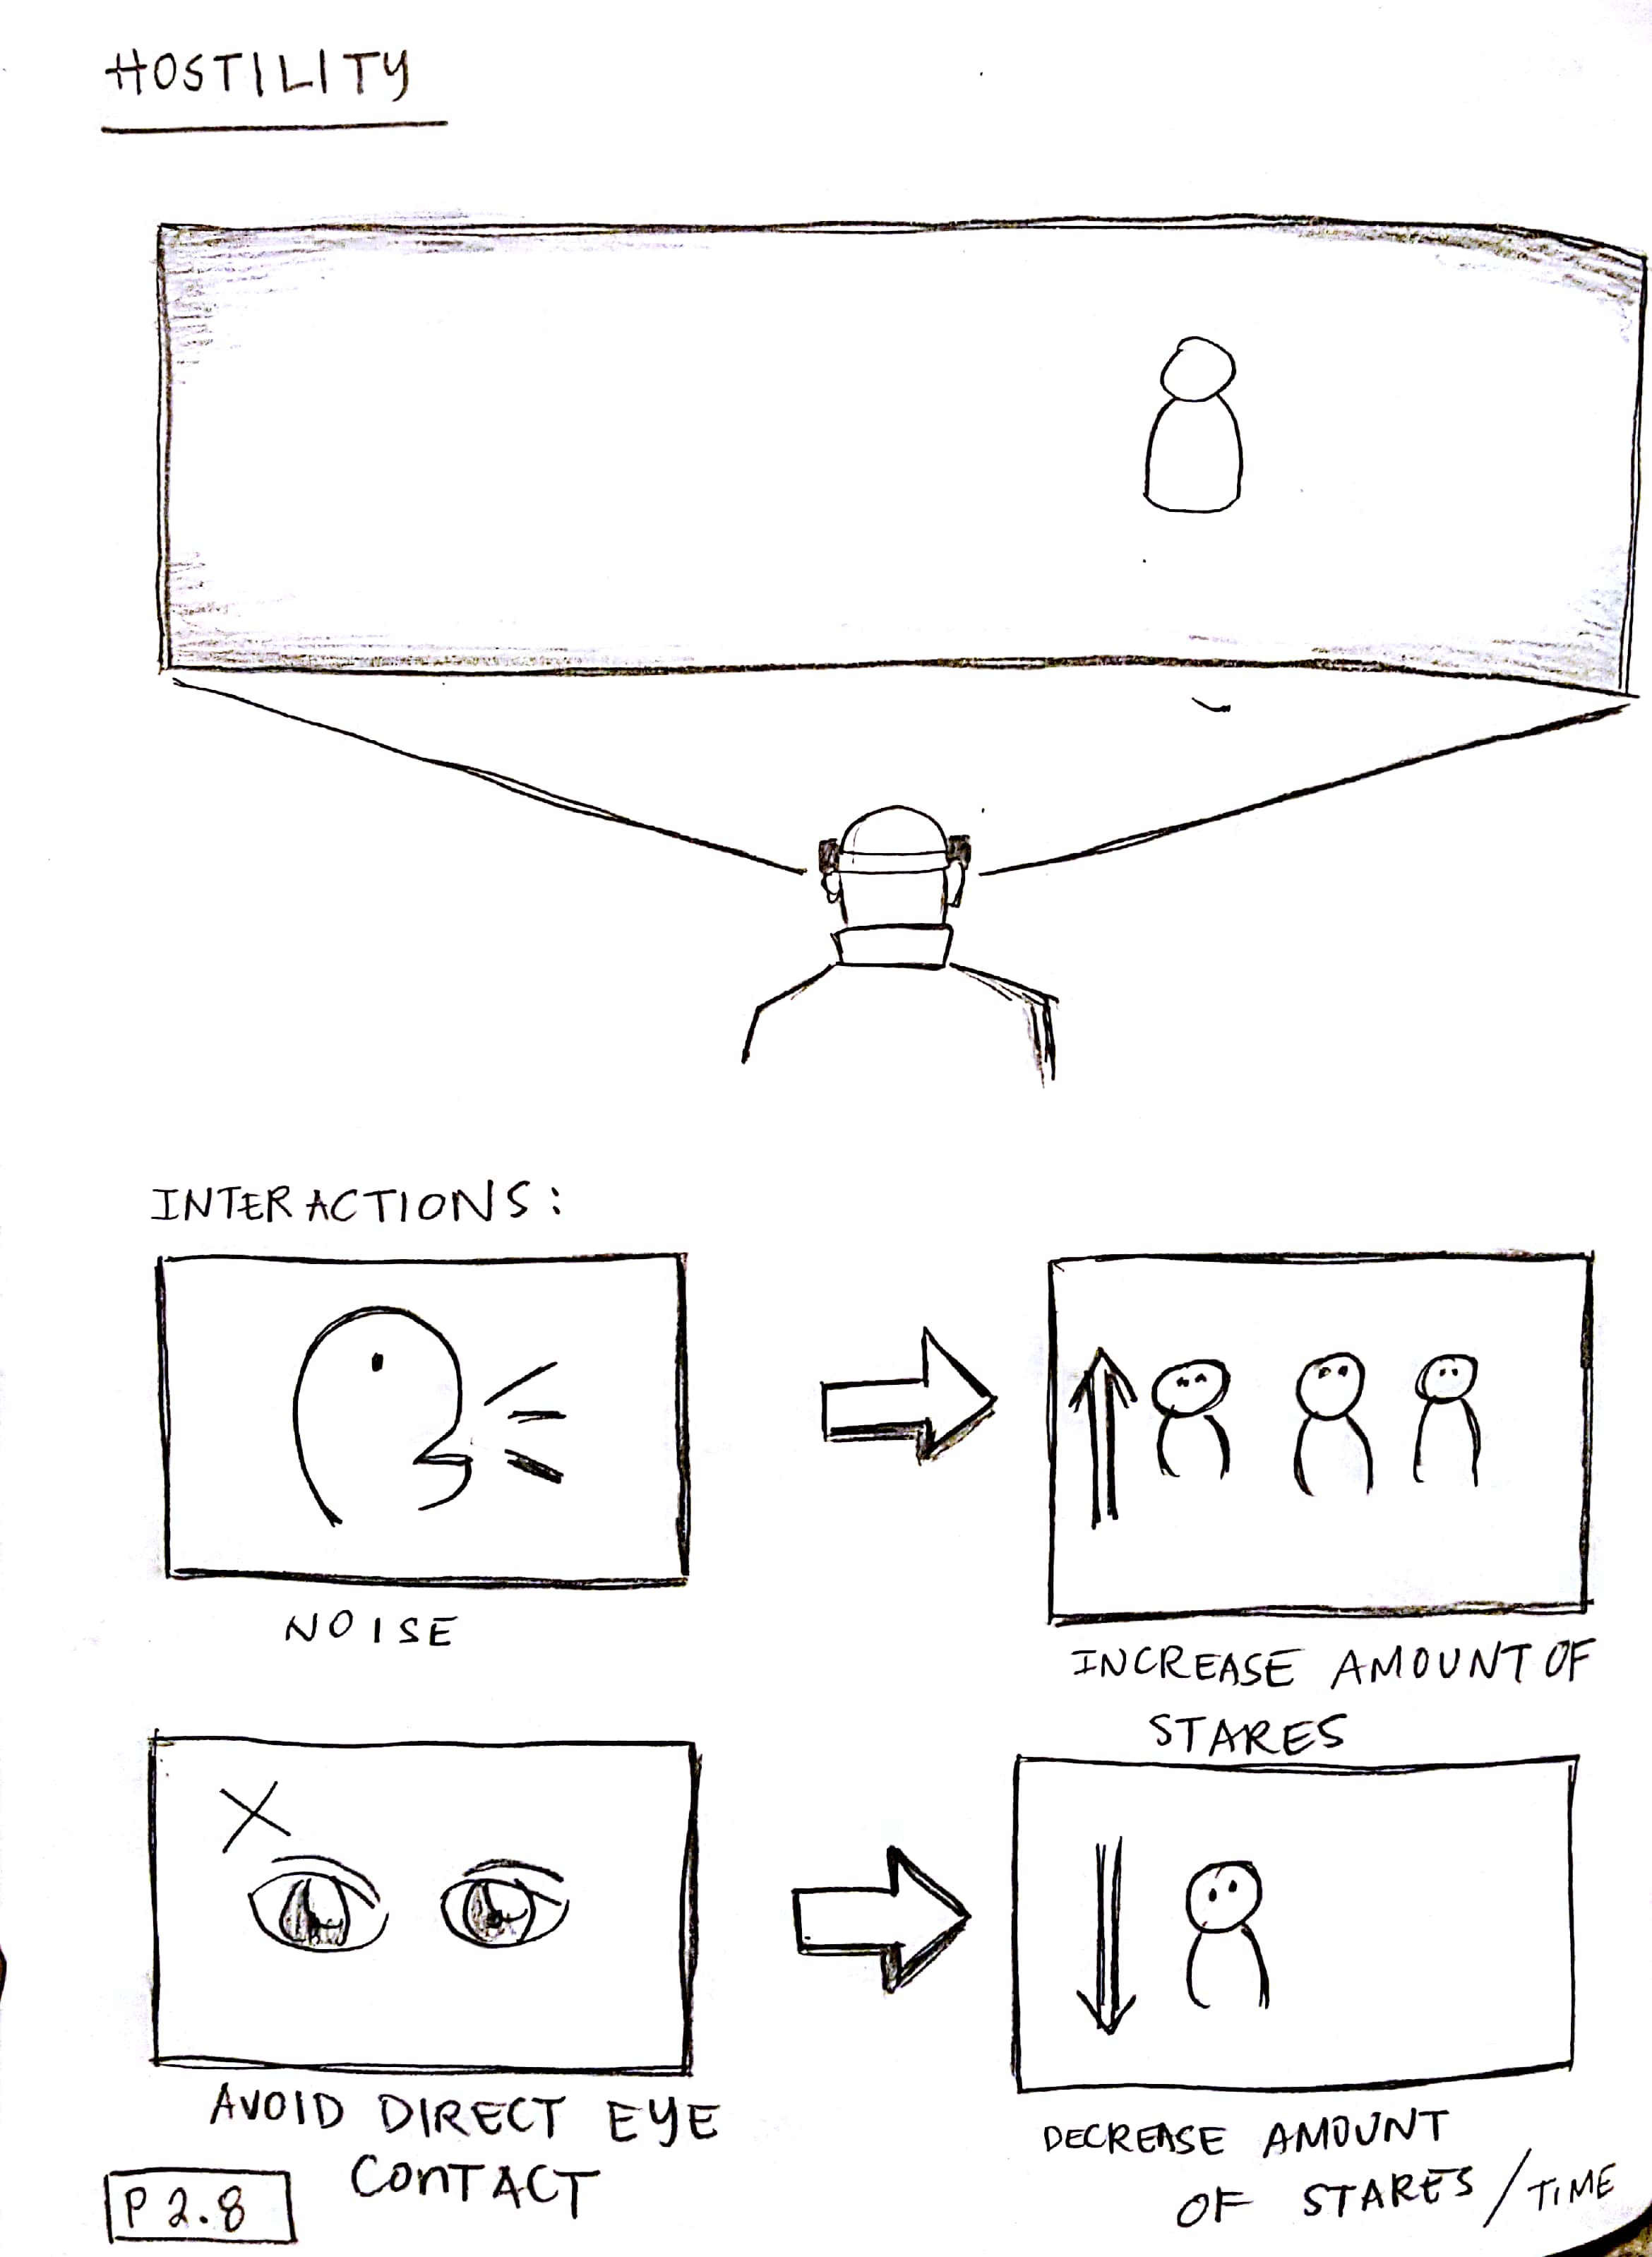 HOSTILITY
INTERACTIONS:
NOISE
INCREASE AMOUNT OF
STARES
AVOID DIRECT EYE
CONTACT
DECREASE AMOUNT
OF STARES / TIME
P 2.8